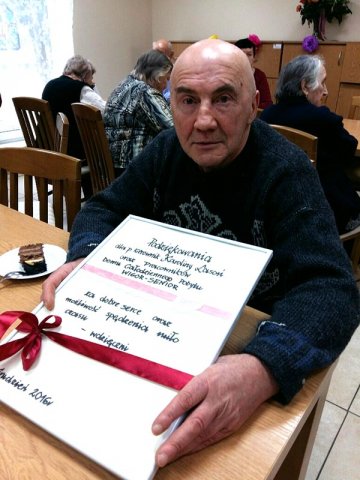 Podziękowania
dla p. kierownik Karoliny Łasoń
oraz Pracowników
Domu Całodziennego Pobytu
WIGOR-SENIOR
za dobre serce oraz
możliwość spędzenia miło
czasu
- wdzięczni
Grudzień 2016r